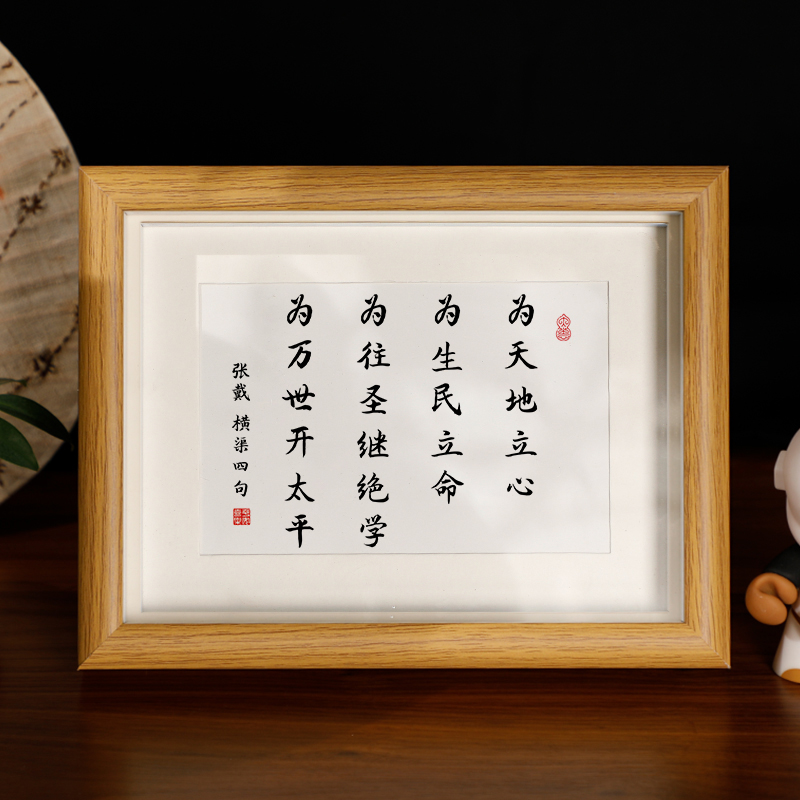 为天地立心
为生民立命
为往圣继绝学
为万世开太平
张戴 横渠四句